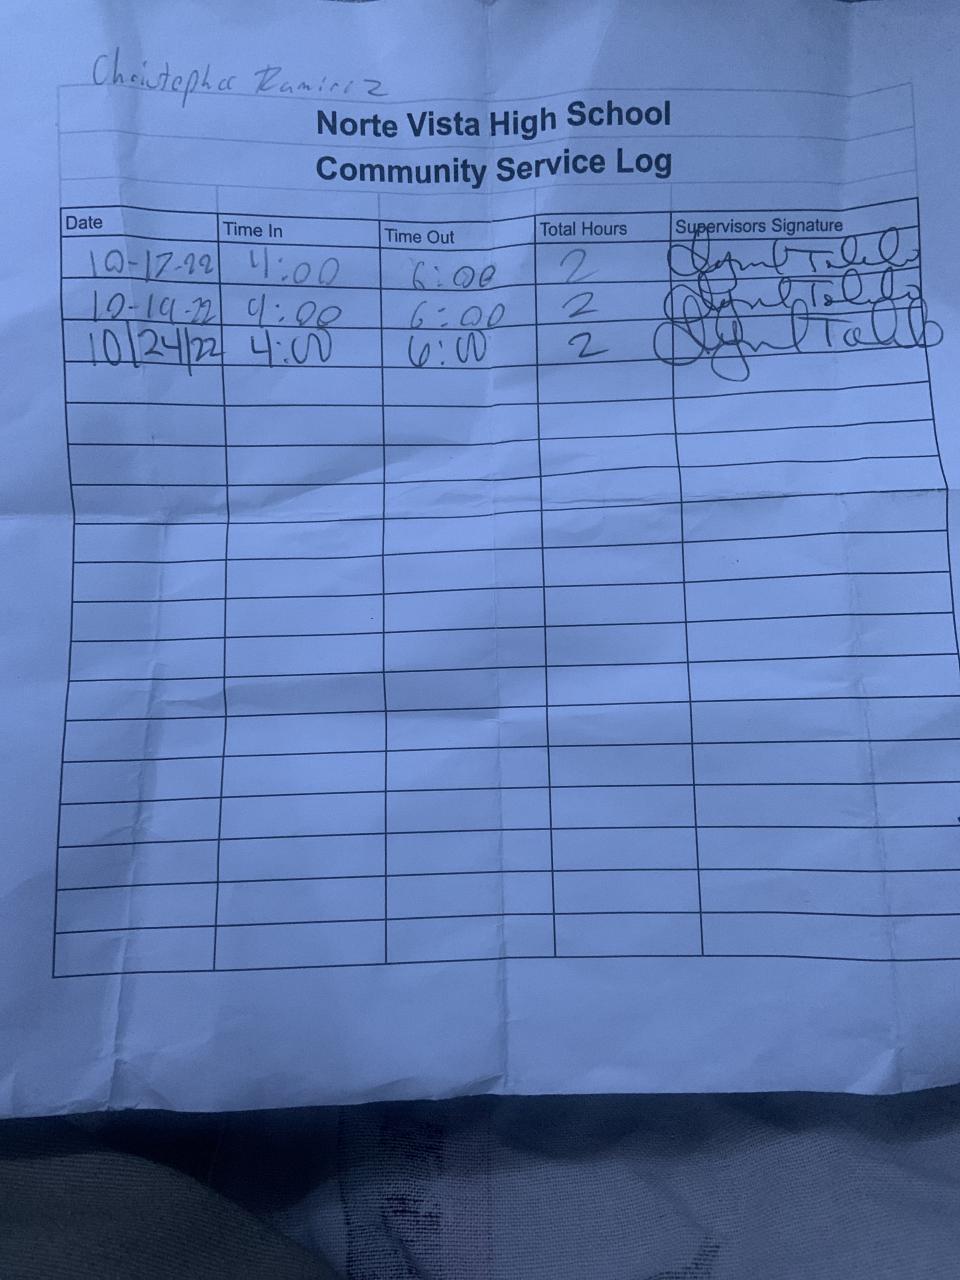 Christopher Ramirez
Norte Vista High School
Community Service Log
Date Time In Time Out Total Hours Supervisors Signature
10-17-22 4:00 6:00 2
10-19-22 4:00 6:00 2
10/24/22 4:00 6:00 2